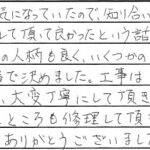 気になっていたので、知り合い
して頂いて良かったという話
の人柄も良く、いくつかの
で決めました。工事は
、大変丁寧にして頂き
ところも修理して頂
ありがとうございまし